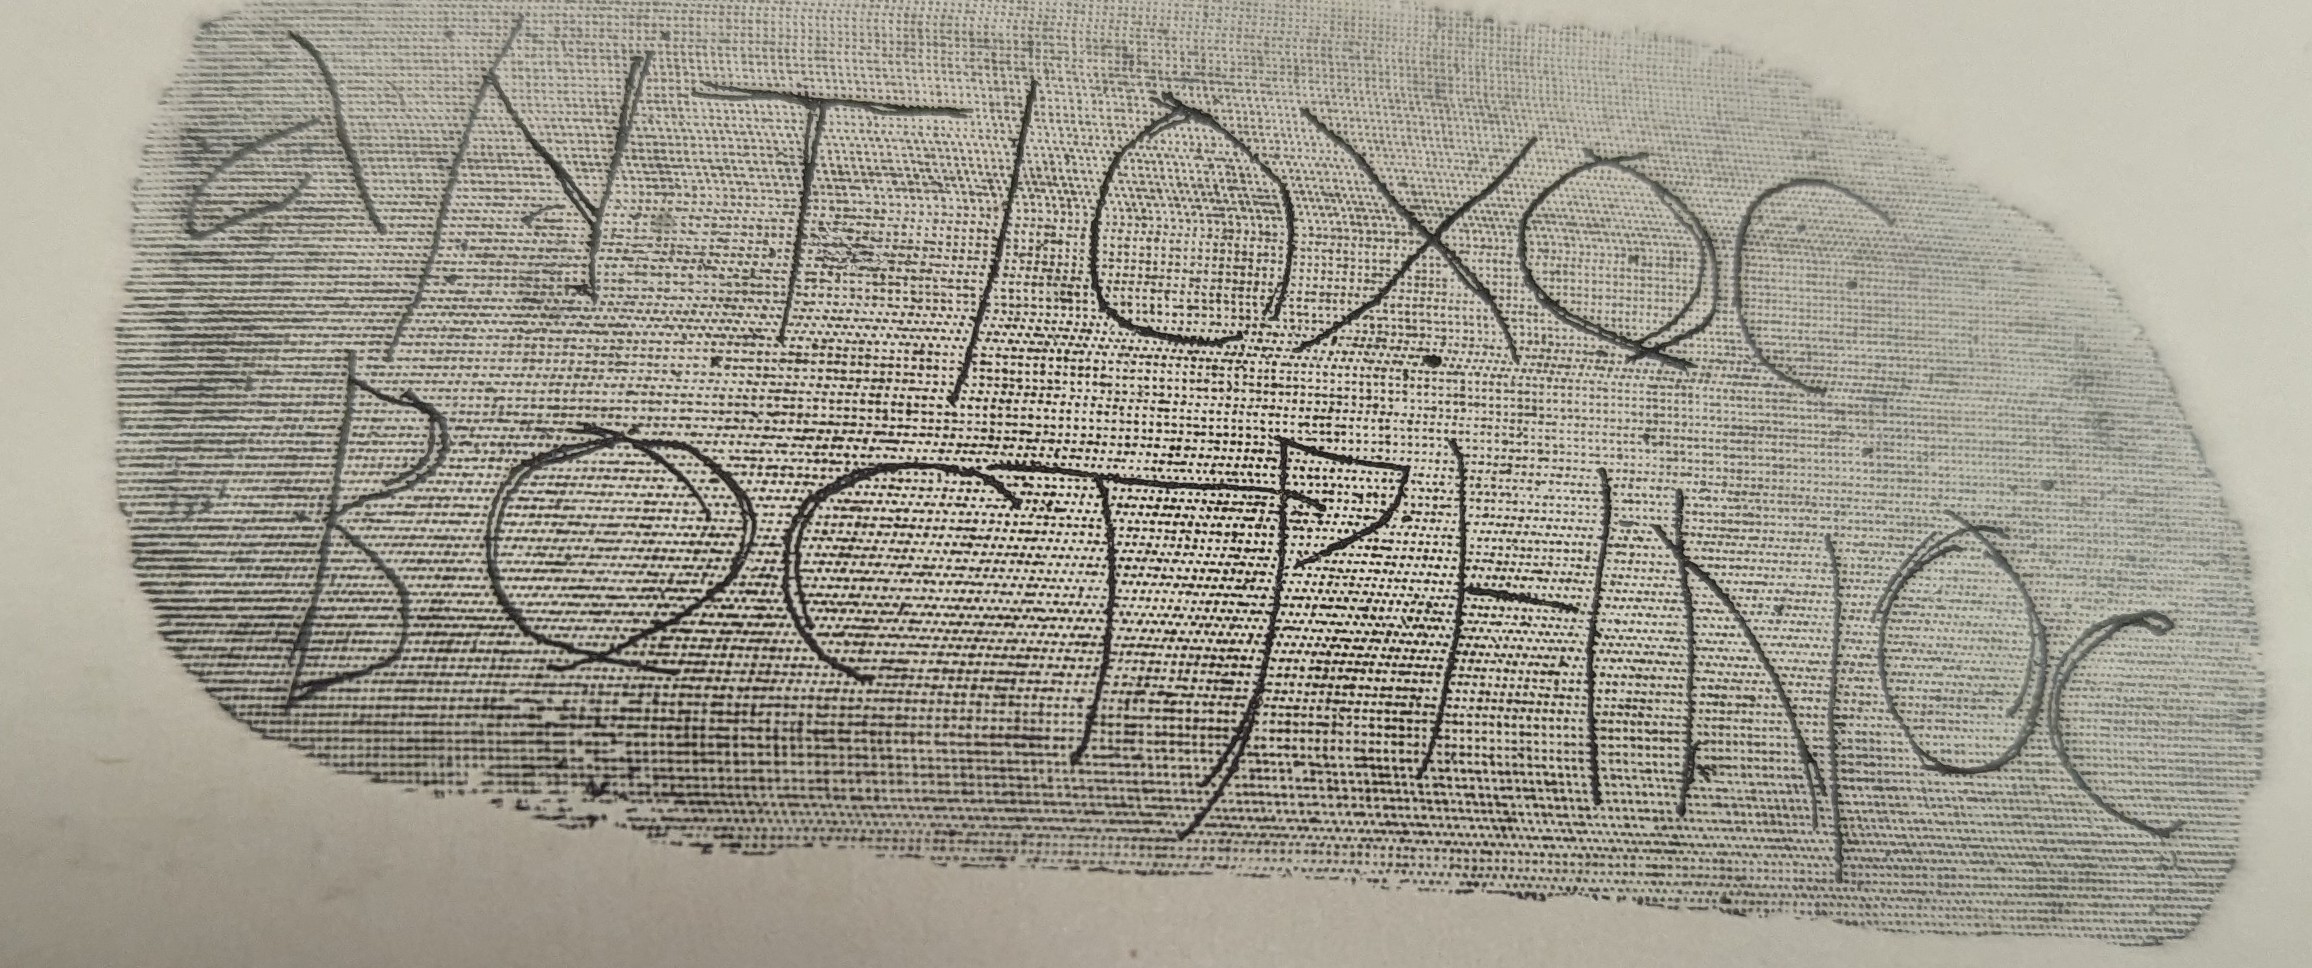 ΑΝΤΙΟΧΟϹ
ΒΟϹΤΡΗΝΟϹ